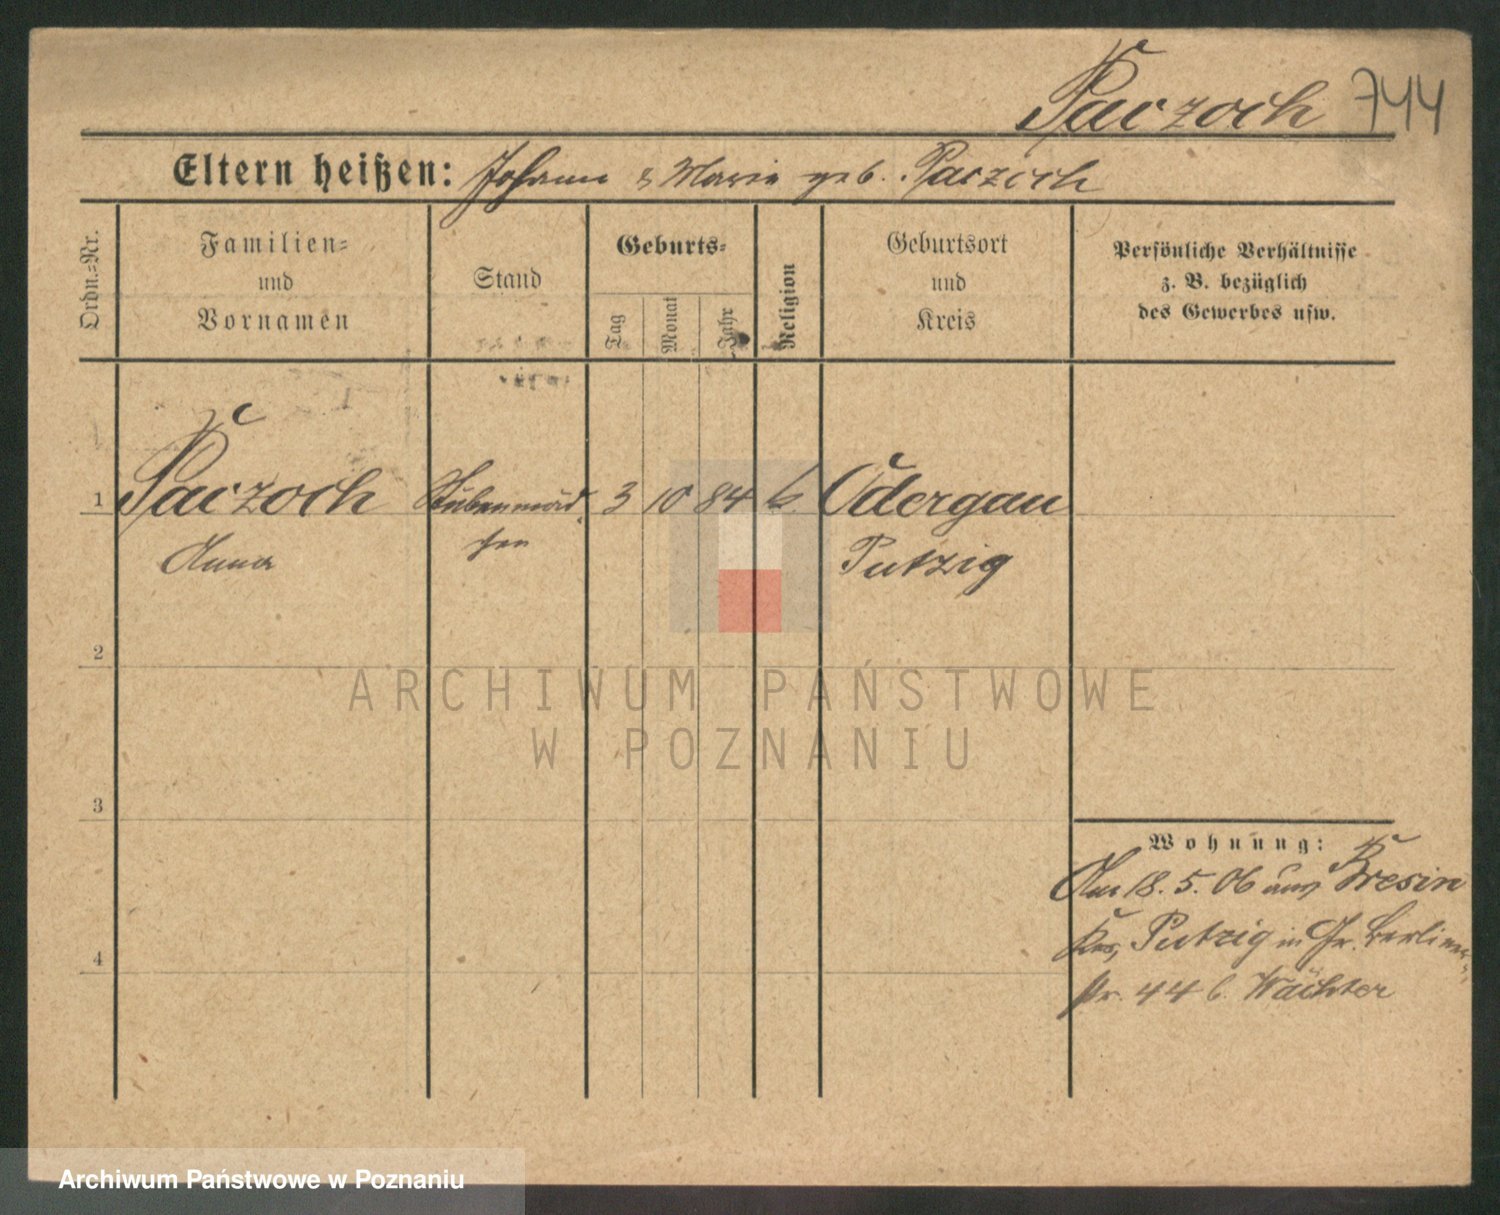 Paczoch 744
Eltern heißen: Johann & Marie geb. Paczoch
Ordn.=Nr.
Familien=
und
Vornamen
Stand
Geburts=
Tag
Monat
Jahr
Religion
Geburtsort
und
Kreis
Persönliche Verhältnisse
z. B. bezüglich
des Gewerbes usw.
1 Paczoch Stubenmäd 3 10 84 k. Odergau
Anna chen Putzig
2
3
4
Wohnung:
Am 18. 5. 06 aus Bresin
Krs. Putzig in Gr. Berliner-
str. 44 b. Wächter
ARCHIWUM PAŃSTWOWE
W POZNANIU
Archiwum Państwowe w Poznaniu